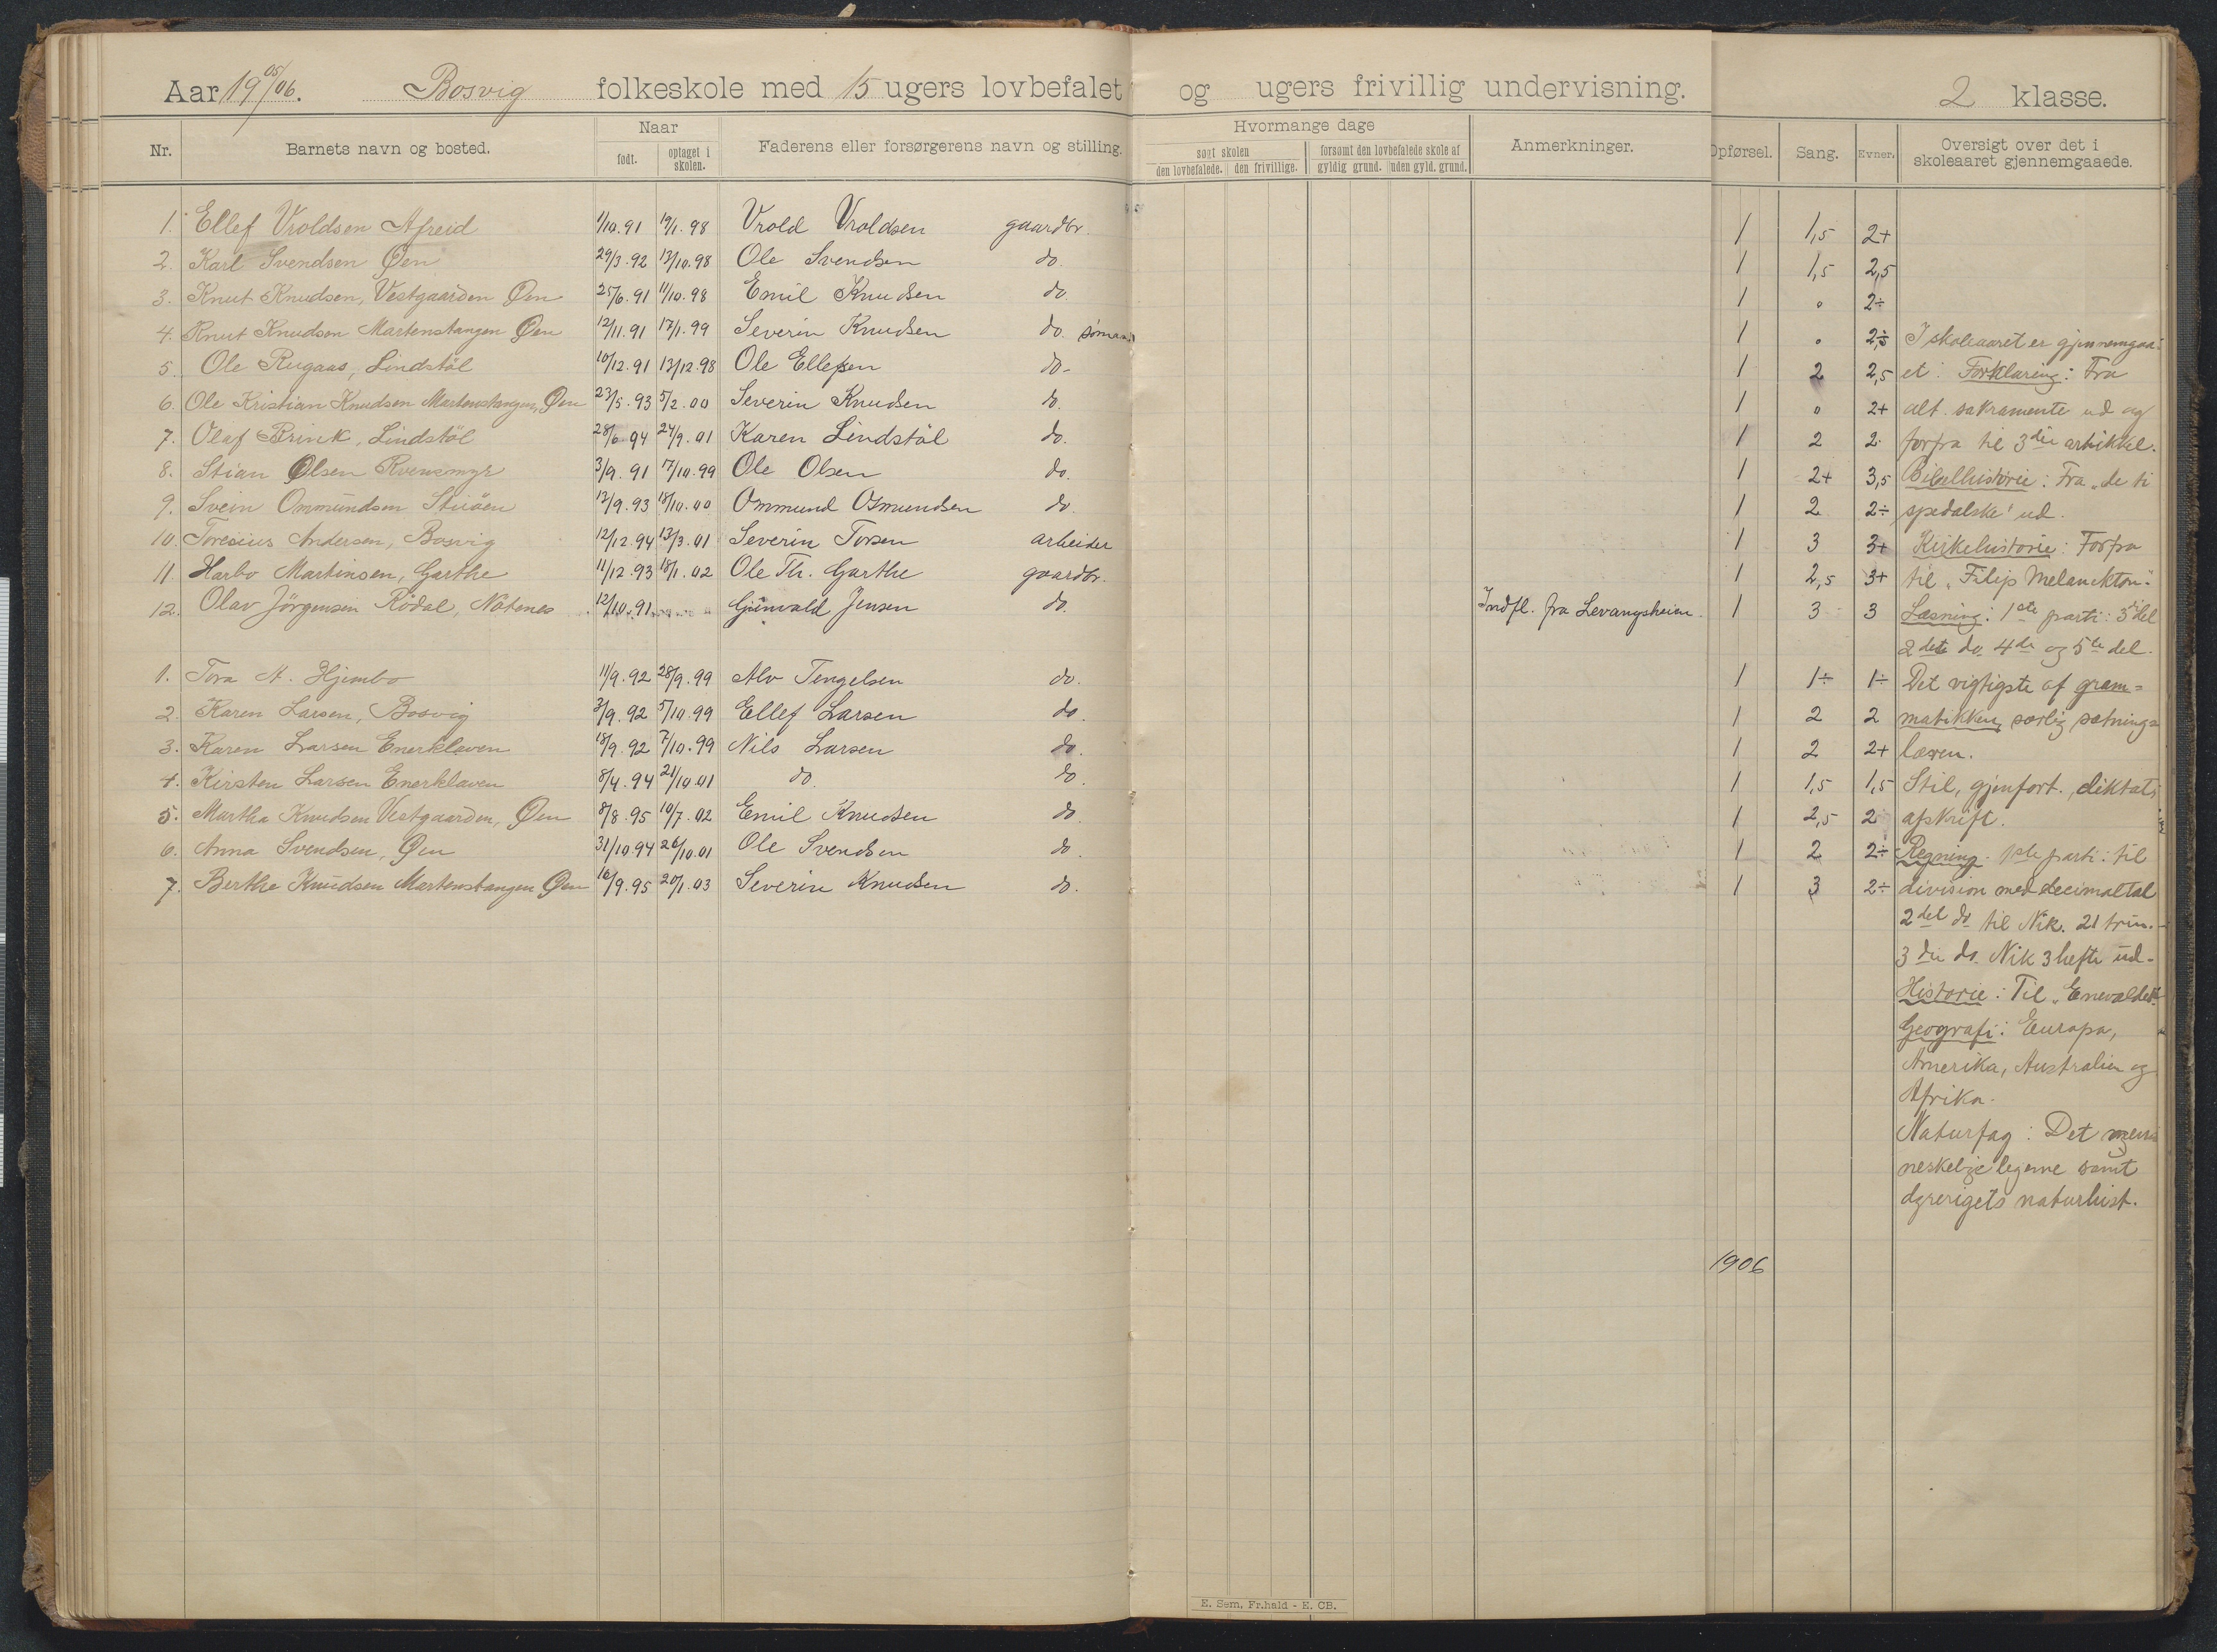 Aar 1905/06. Bosvig folkeskole med 15 ugers lovbefalet og ugers frivillig undervisning. 2 klasse.
Nr. Barnets navn og bosted. Naar født. optaget i skolen. Faderens eller forsørgerens navn og stilling. Hvormange dage søgt skolen den lovbefalede. den frivillige. forsømt den lovbefalede skole af gyldig grund. uden gyld. grund. Anmerkninger. Opførsel. Sang. Evner. Oversigt over det i skoleaaret gjennemgaaede.
1. Ellef Vroldsen Afreid 1/10.91 19/1.98 Vrold Vroldsen gaardbr. 1 1,5 2+
2. Karl Svendsen Øen 29/3.92 13/10.98 Ole Svendsen do. 1 1,5 2,5
3. Knut Knudsen, Vestgaarden Øen 25/6.91 11/10.98 Emil Knudsen do. 1 0 2÷
4. Knut Knudsen Martenstangen Øen 12/11.91 17/1.99 Severin Knudsen do. sømand 1 0 2,5 I skoleaaret er gjennemgaa-
5. Ole Rugaas, Lindstöl 10/12.91 13/12.98 Ole Ellefsen do. 1 2 2,5 et: Forklaring: Fra
6. Ole Kristian Knudsen Martenstangen, Øen 23/5.93 5/2.00 Severin Knudsen do. 1 0 2+ alt. sakramente ud og
7. Olaf Brink, Lindstöl 28/6.94 24/9.01 Karen Lindstöl do. 1 2 2. forfra til 3die artikkel.
8. Stian Olsen Kvensmyr 3/9.91 17/10.99 Ole Olsen do. 1 2+ 3,5 Bibelhistorie: Fra "de ti
9. Svein Ommundsen Stiöen 12/9.93 18/10.00 Ommund Osmundsen do 1 2 2÷ spedalske" ud.
10. Toresius Andersen, Bosvig 12/12.94 13/3.01 Severin Torsen arbeider 1 3 3+ Kirkehistorie: Forfra
11 Harbo Martinsen, Garthe 11/12.93 18/1.02 Ole Th. Garthe gaardbr. 1 2,5 3+ til "Filip Melanckton".
12. Olav Jörgensen Rödal, Nötenes 12/10.91 Gunvald Jensen do. Indfl. fra Levangsheien. 1 3 3 Læsning: 1ste parti: 3die del
2det do 4de og 5te del.
1. Tora A. Hjembo 11/9.92 28/9.99 Alv Tengelsen do. 1 1÷ 1÷ Det vigtigste af gram=
2. Karen Larsen, Bosvig 3/9.92 5/10.99 Ellef Larsen do. 1 2 2 matikken, særlig sætnings
3. Karen Larsen Enerklaven 18/9.92 7/10.99 Nils Larsen do. 1 2 2+ læren.
4. Kirsten Larsen Enerklaven 8/4.94 21/10.01 do. do. 1 1,5 1,5 Stil, gjenfort., diktat,
5. Martha Knudsen Vestgaarden, Øen 8/8.95 10/7.02 Emil Knudsen do. 1 2,5 2 afskrift.
6. Anna Svendsen, Øen 31/10.94 26/10.01 Ole Svendsen do. 1 2 2÷ Regning. 1ste parti: til
7. Berthe Knudsen Martenstangen Øen 16/9.95 20/1.03 Severin Knudsen do. 1 3 2÷ division med decimaltal
2det do til Nik. 21 trin.
3die do. Nik 3 hefte ud.
Historie: Til "Enevældet".
Geografi: Europa,
Amerika, Australien og
Afrika.
Naturfag: Det men
neskelige legeme samt
dyrerigets naturhist.
1906
E. Sem, Fr.hald - E. CB.